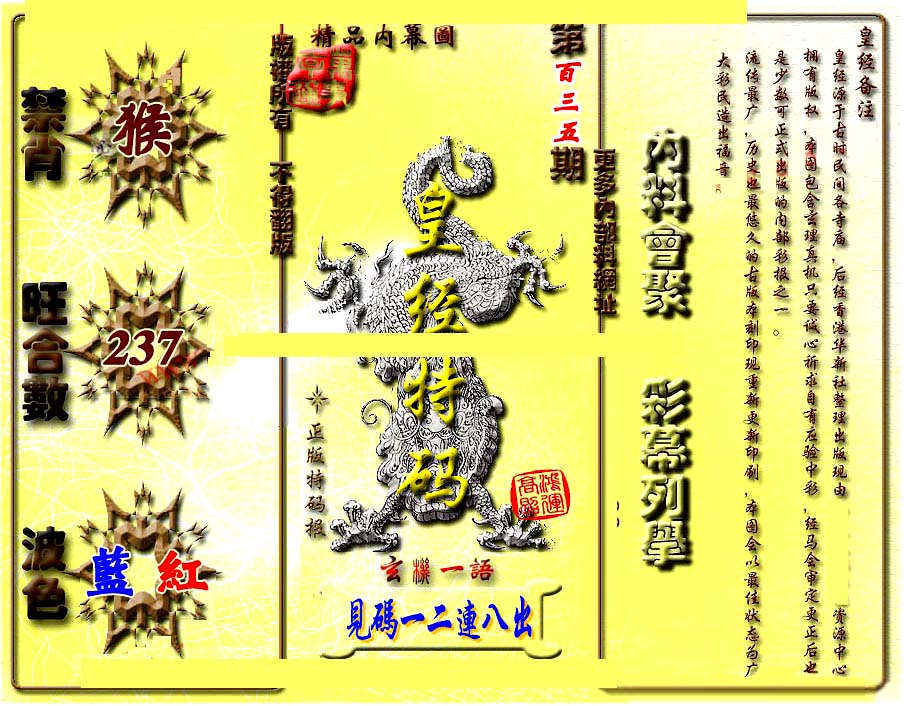 皇经备注
皇经源于古时民间各寺庙,后经香港华新社整理出版现由
资源中心
拥有版权,本图包含玄理真机只要诚心祈求自有应验中彩,经马会审定更正后也
是少数可正式出版的内部彩报之一。
流传最广,历史也最悠久的古版本刻印现重新更新印刷,本图会以最佳状态为广
大彩民造出福音
内料會聚
彩幕列舉
更多内部料網址
第百三五期
精品内幕圖
版權所有
不得翻版
皇经特码
正版特码报
鴻運
高照
玄機一語
見碼一二連八出
禁肖
猴
旺合數
237
波色
藍 紅